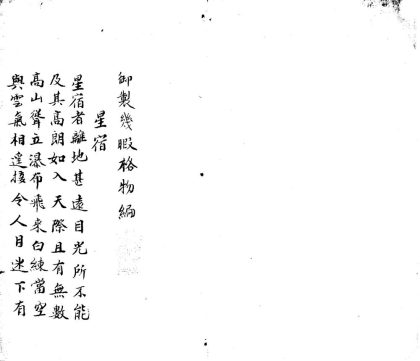 御製幾暇格物編
星宿
星宿者離地甚遠目光所不能
及其高朗如入天際且有無數
高山聳立瀑布飛來白練當空
與雲氣相遙接令人目迷下有